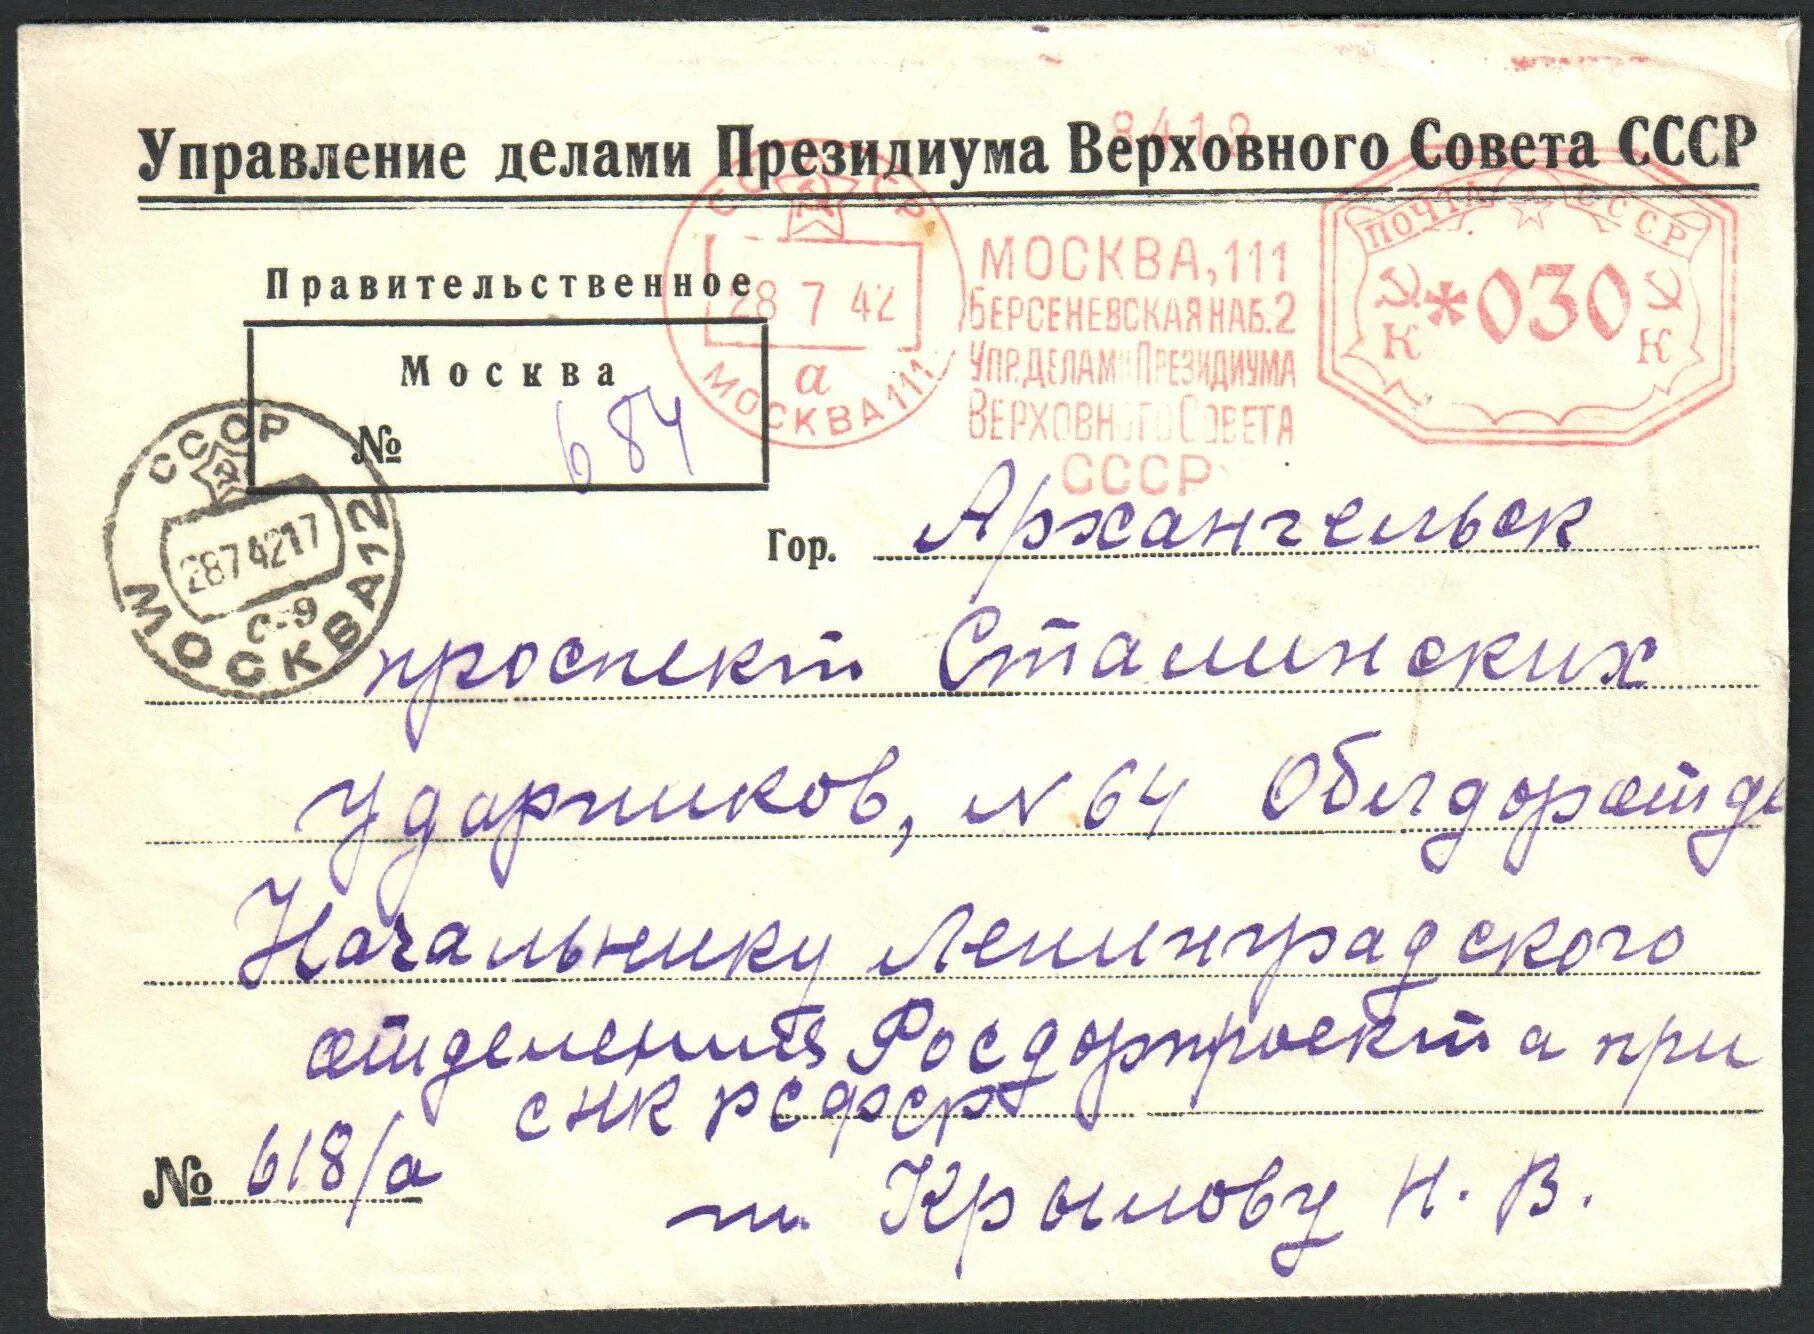 8412
Управление делами Президиума Верховного Совета СССР
Правительственное
Москва
№ 684
СССР
28 7 42
а
МОСКВА 111
МОСКВА, 111
БЕРСЕНЕВСКАЯ НАБ. 2
УПР. ДЕЛАМИ ПРЕЗИДИУМА
ВЕРХОВНОГО СОВЕТА
СССР
ПОЧТА СССР
К *030 К
СССР
28 7 42 17
С-9
МОСКВА 12
Гор. Архангельск
проспект Сталинских
Ударников, № 64 Облдоротде
Начальнику Ленинградского
отделения Росдорпроекта при
СНК РСФСР
№ 618/а
т. Крылову Н. В.